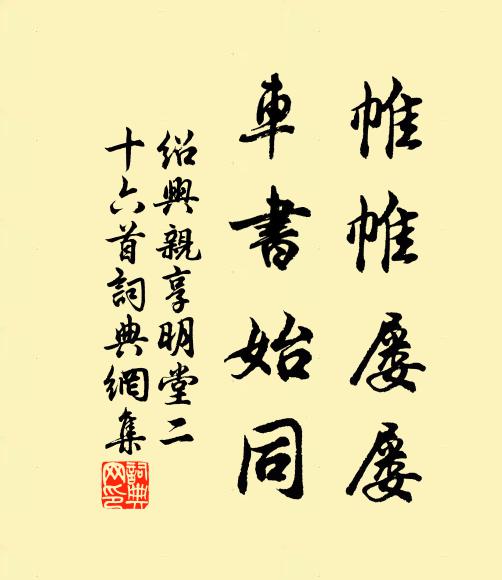 帷帷屡屡
車書始同
紹興親享明堂二
十六首詞典網集
詞典网印